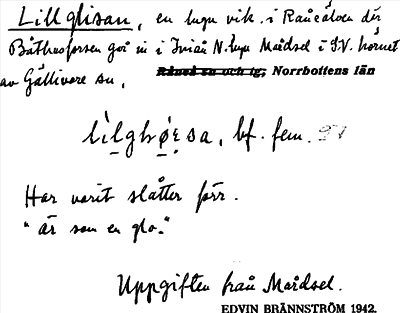 Lillglisan, en lugn vik i Råneälven där
Båthusforsen går in i Inrån N. byn Mårdsel i S.V. hörnet
av Gällivare sn,
Råneå sn och tg, Norrbottens län
bf. fem.
Har varit slåtter förr.
"är som en glo."
Uppgiften från Mårdsel.
EDVIN BRÄNNSTRÖM 1942.